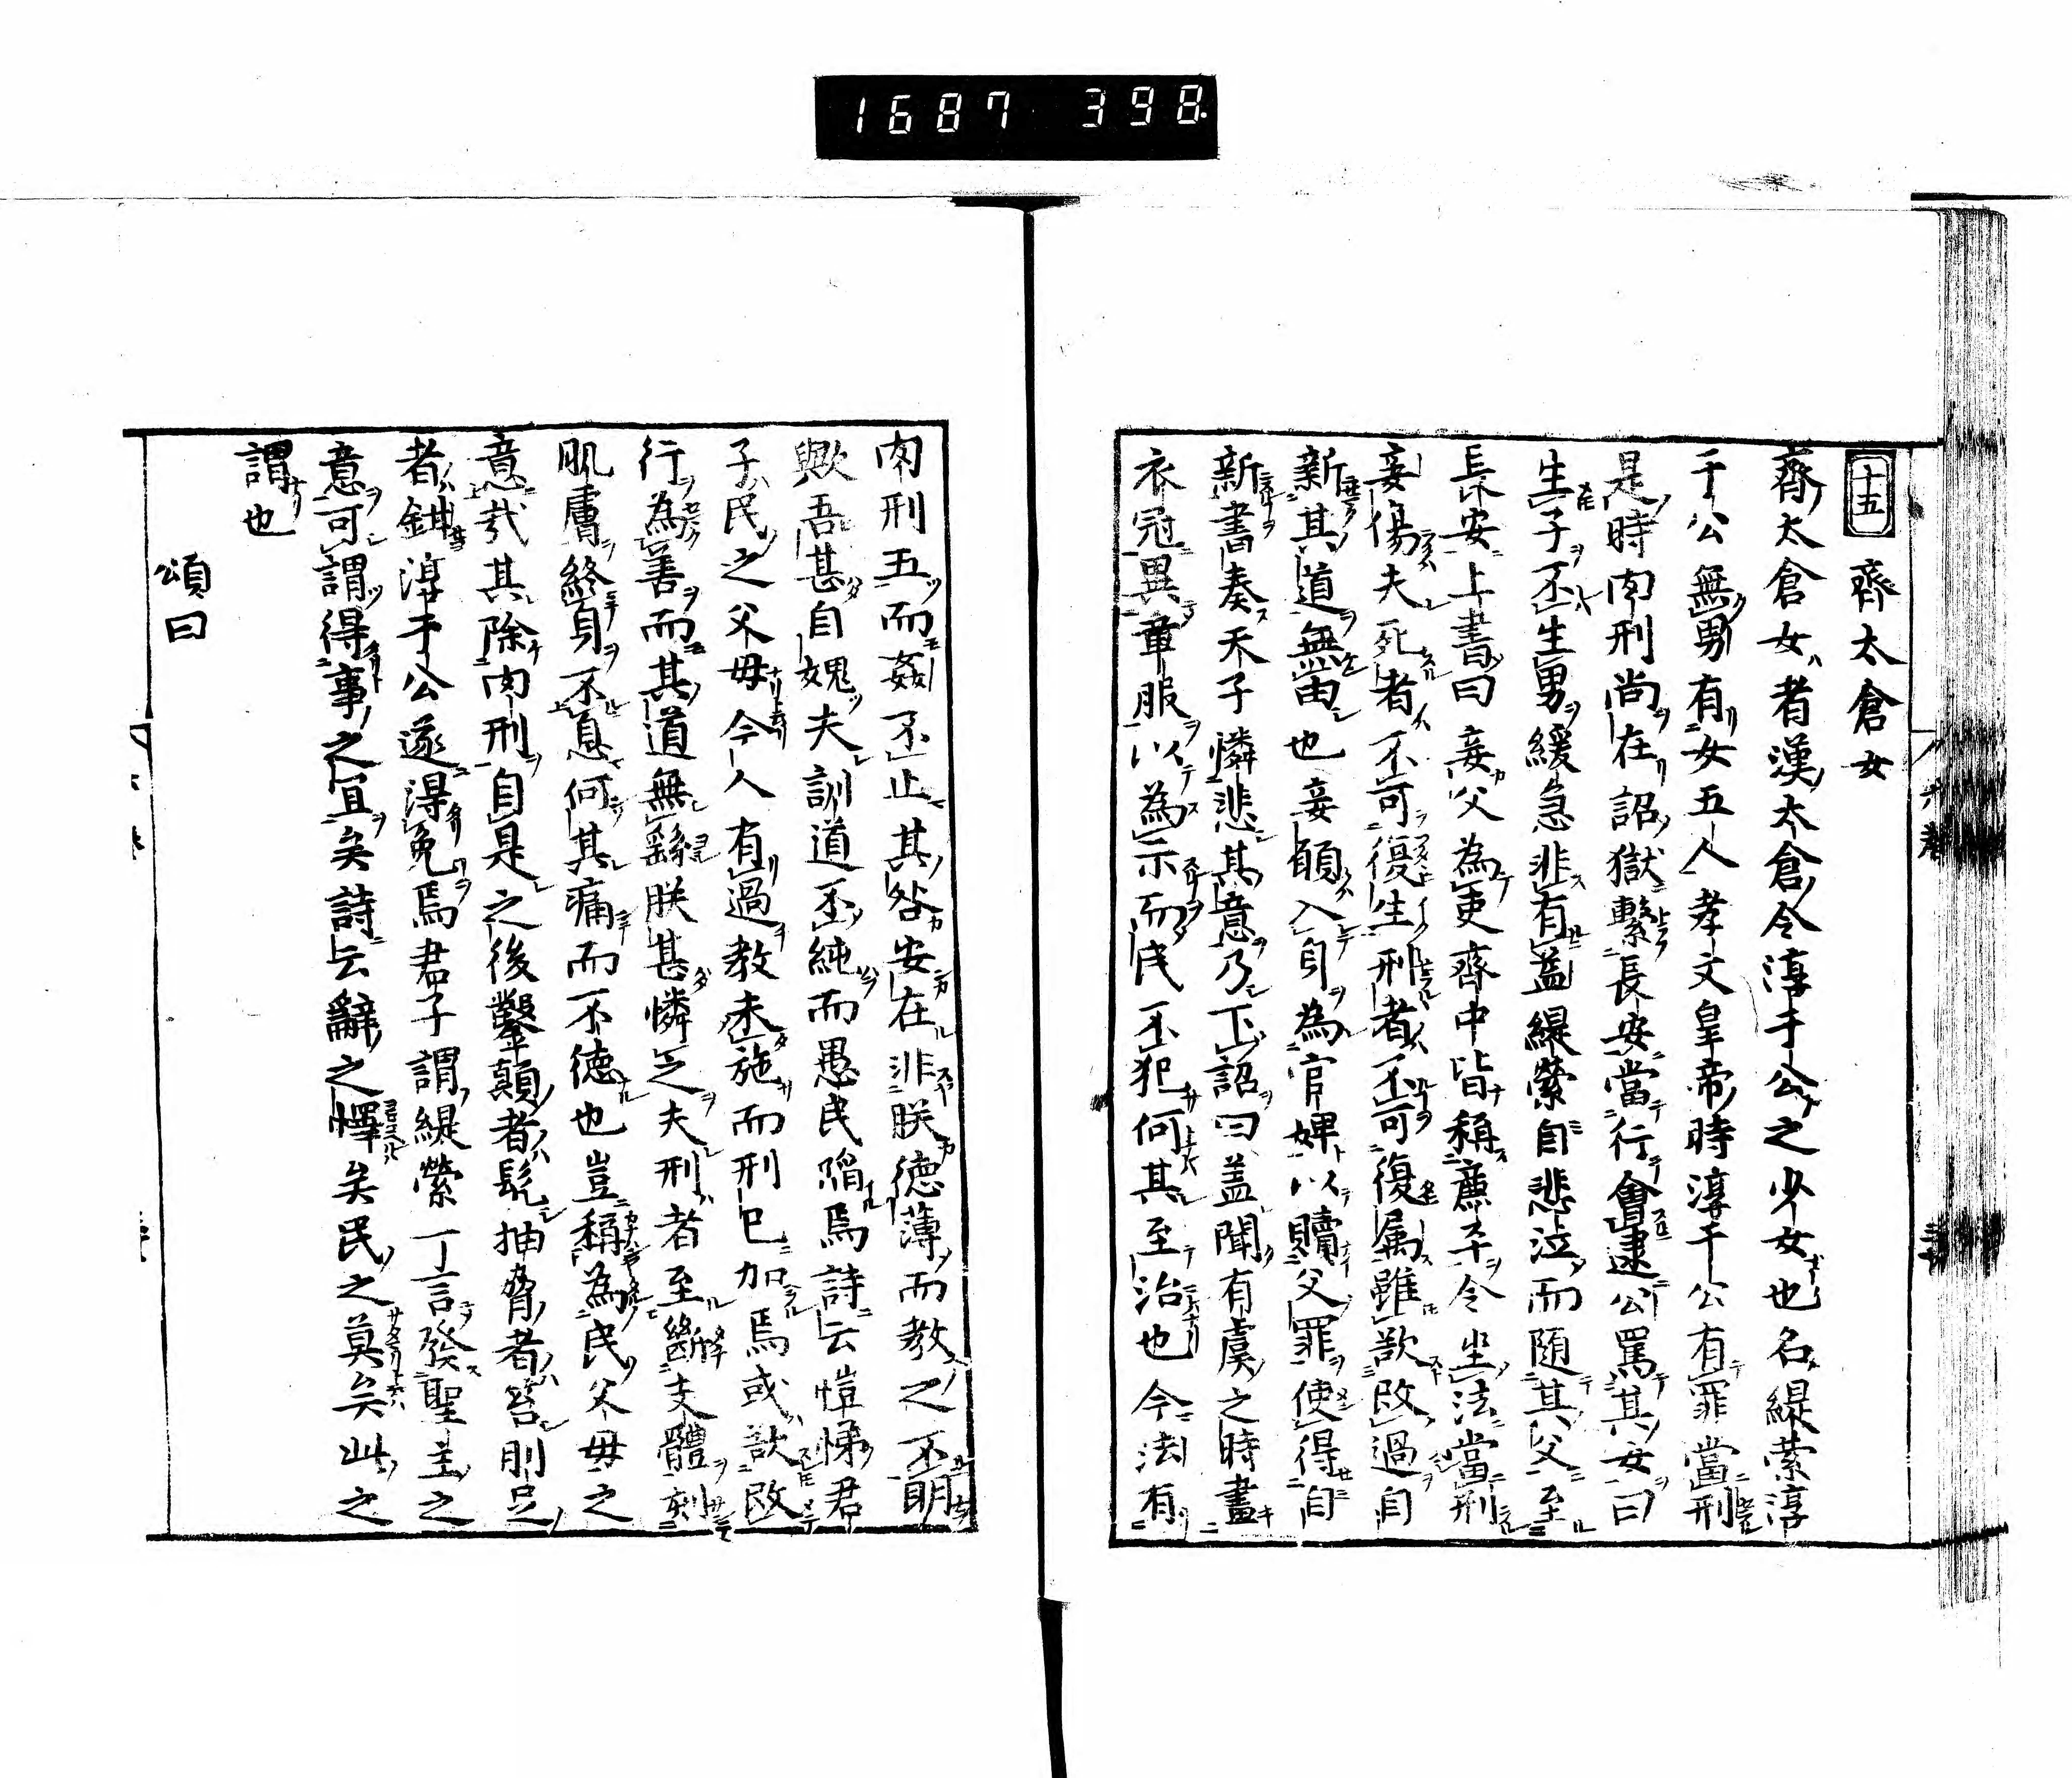 1687 398
十五 齊太倉女
齊太倉女者漢太倉令淳于公之少女也名緹縈淳
于公無男有女五人孝文皇帝時淳于公有罪當刑
是時肉刑尚在詔獄繫長安當行會逮公罵其女曰
生子不生男緩急非有益緹縈自悲泣而隨其父至
長安上書曰妾父為吏齊中皆稱廉平今坐法當刑
妾傷夫死者不可復生刑者不可復属雖欲改過自
新其道無由也妾願入身為官婢以贖父罪使得自
新書奏天子憐悲其意乃下詔曰盖聞有虞之時畫
衣冠異章服以為示而民不犯何其至治也今法有
肉刑五而姦不止其咎安在非朕德薄而教之不明
歟吾甚自媿夫訓道不純而愚民陥焉詩云愷悌君
子民之父毋今人有過教未施而刑已加焉或欲改
行為善而其道無繇朕甚憐之夫刑者至斷支體刻
肌膚終身不息何其痛而不德也豈稱為民父毋之
意哉其除肉刑自是之後鑿顛者髡抽脅者笞刖足
者鉗淳于公遂得免焉君子謂緹縈一言發聖主之
意可謂得事之宜矣詩云辭之懌矣民之莫矣此之
謂也
頌曰